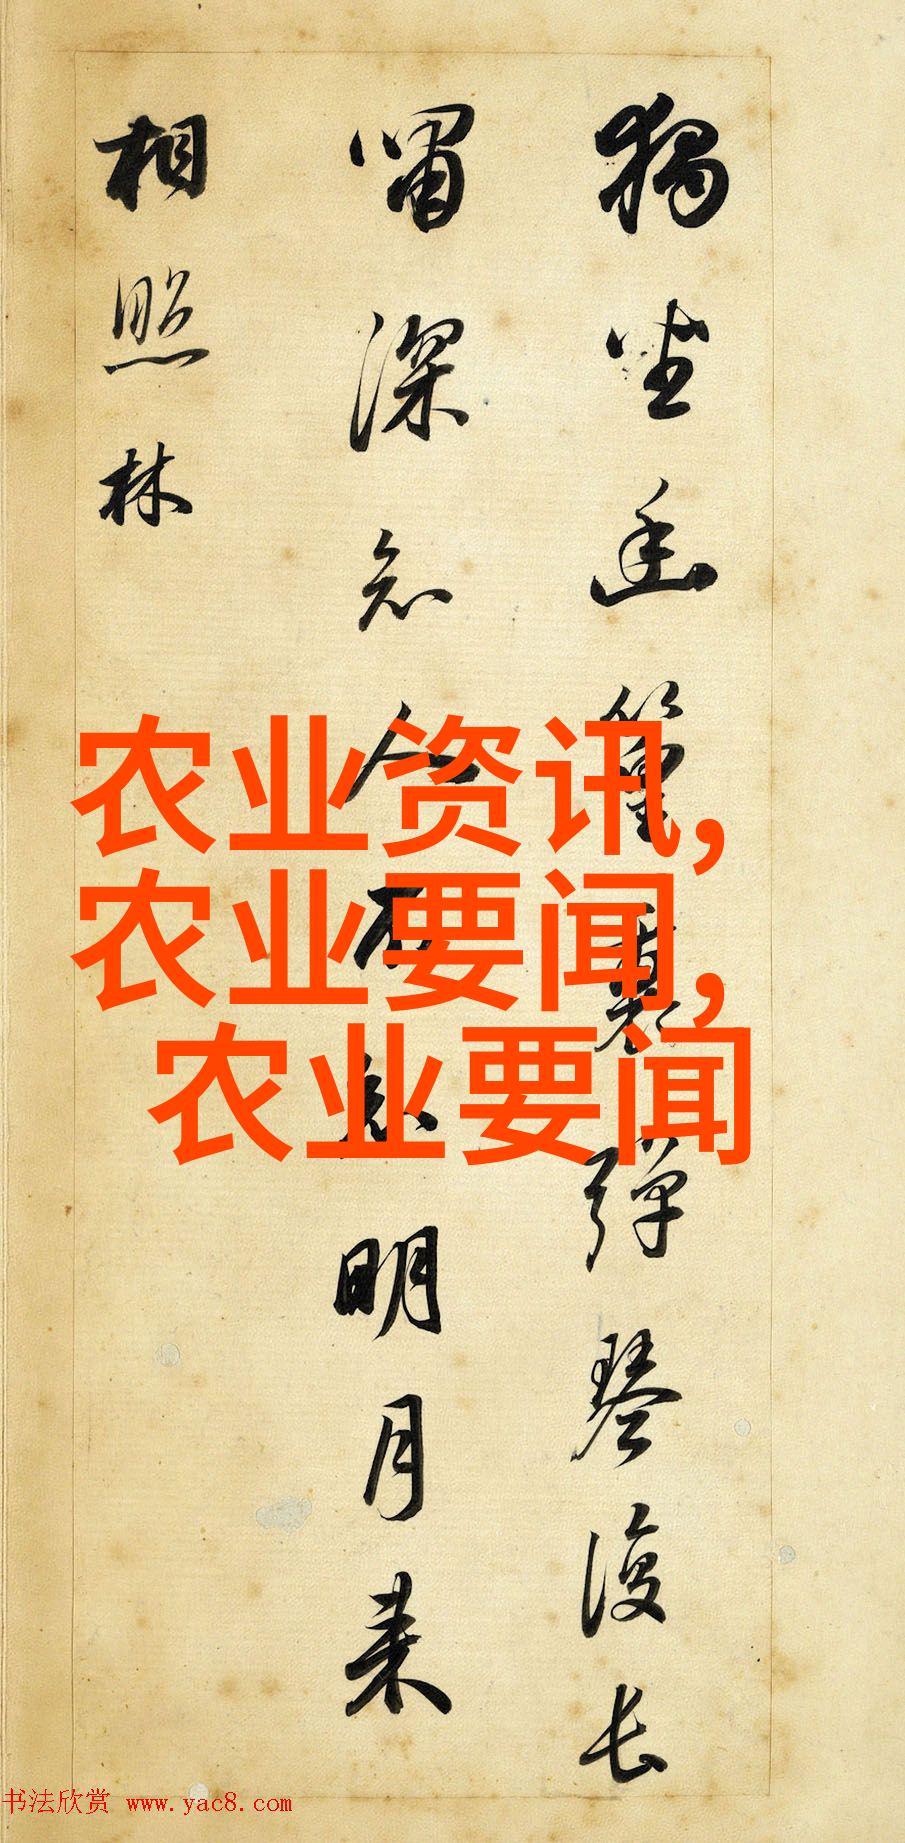 獨坐幽篁裏彈琴復长
嘯深知人不知明月来
相照林
农业资讯,
农业要闻,
农业要闻
书法欣赏 www.yac8.com